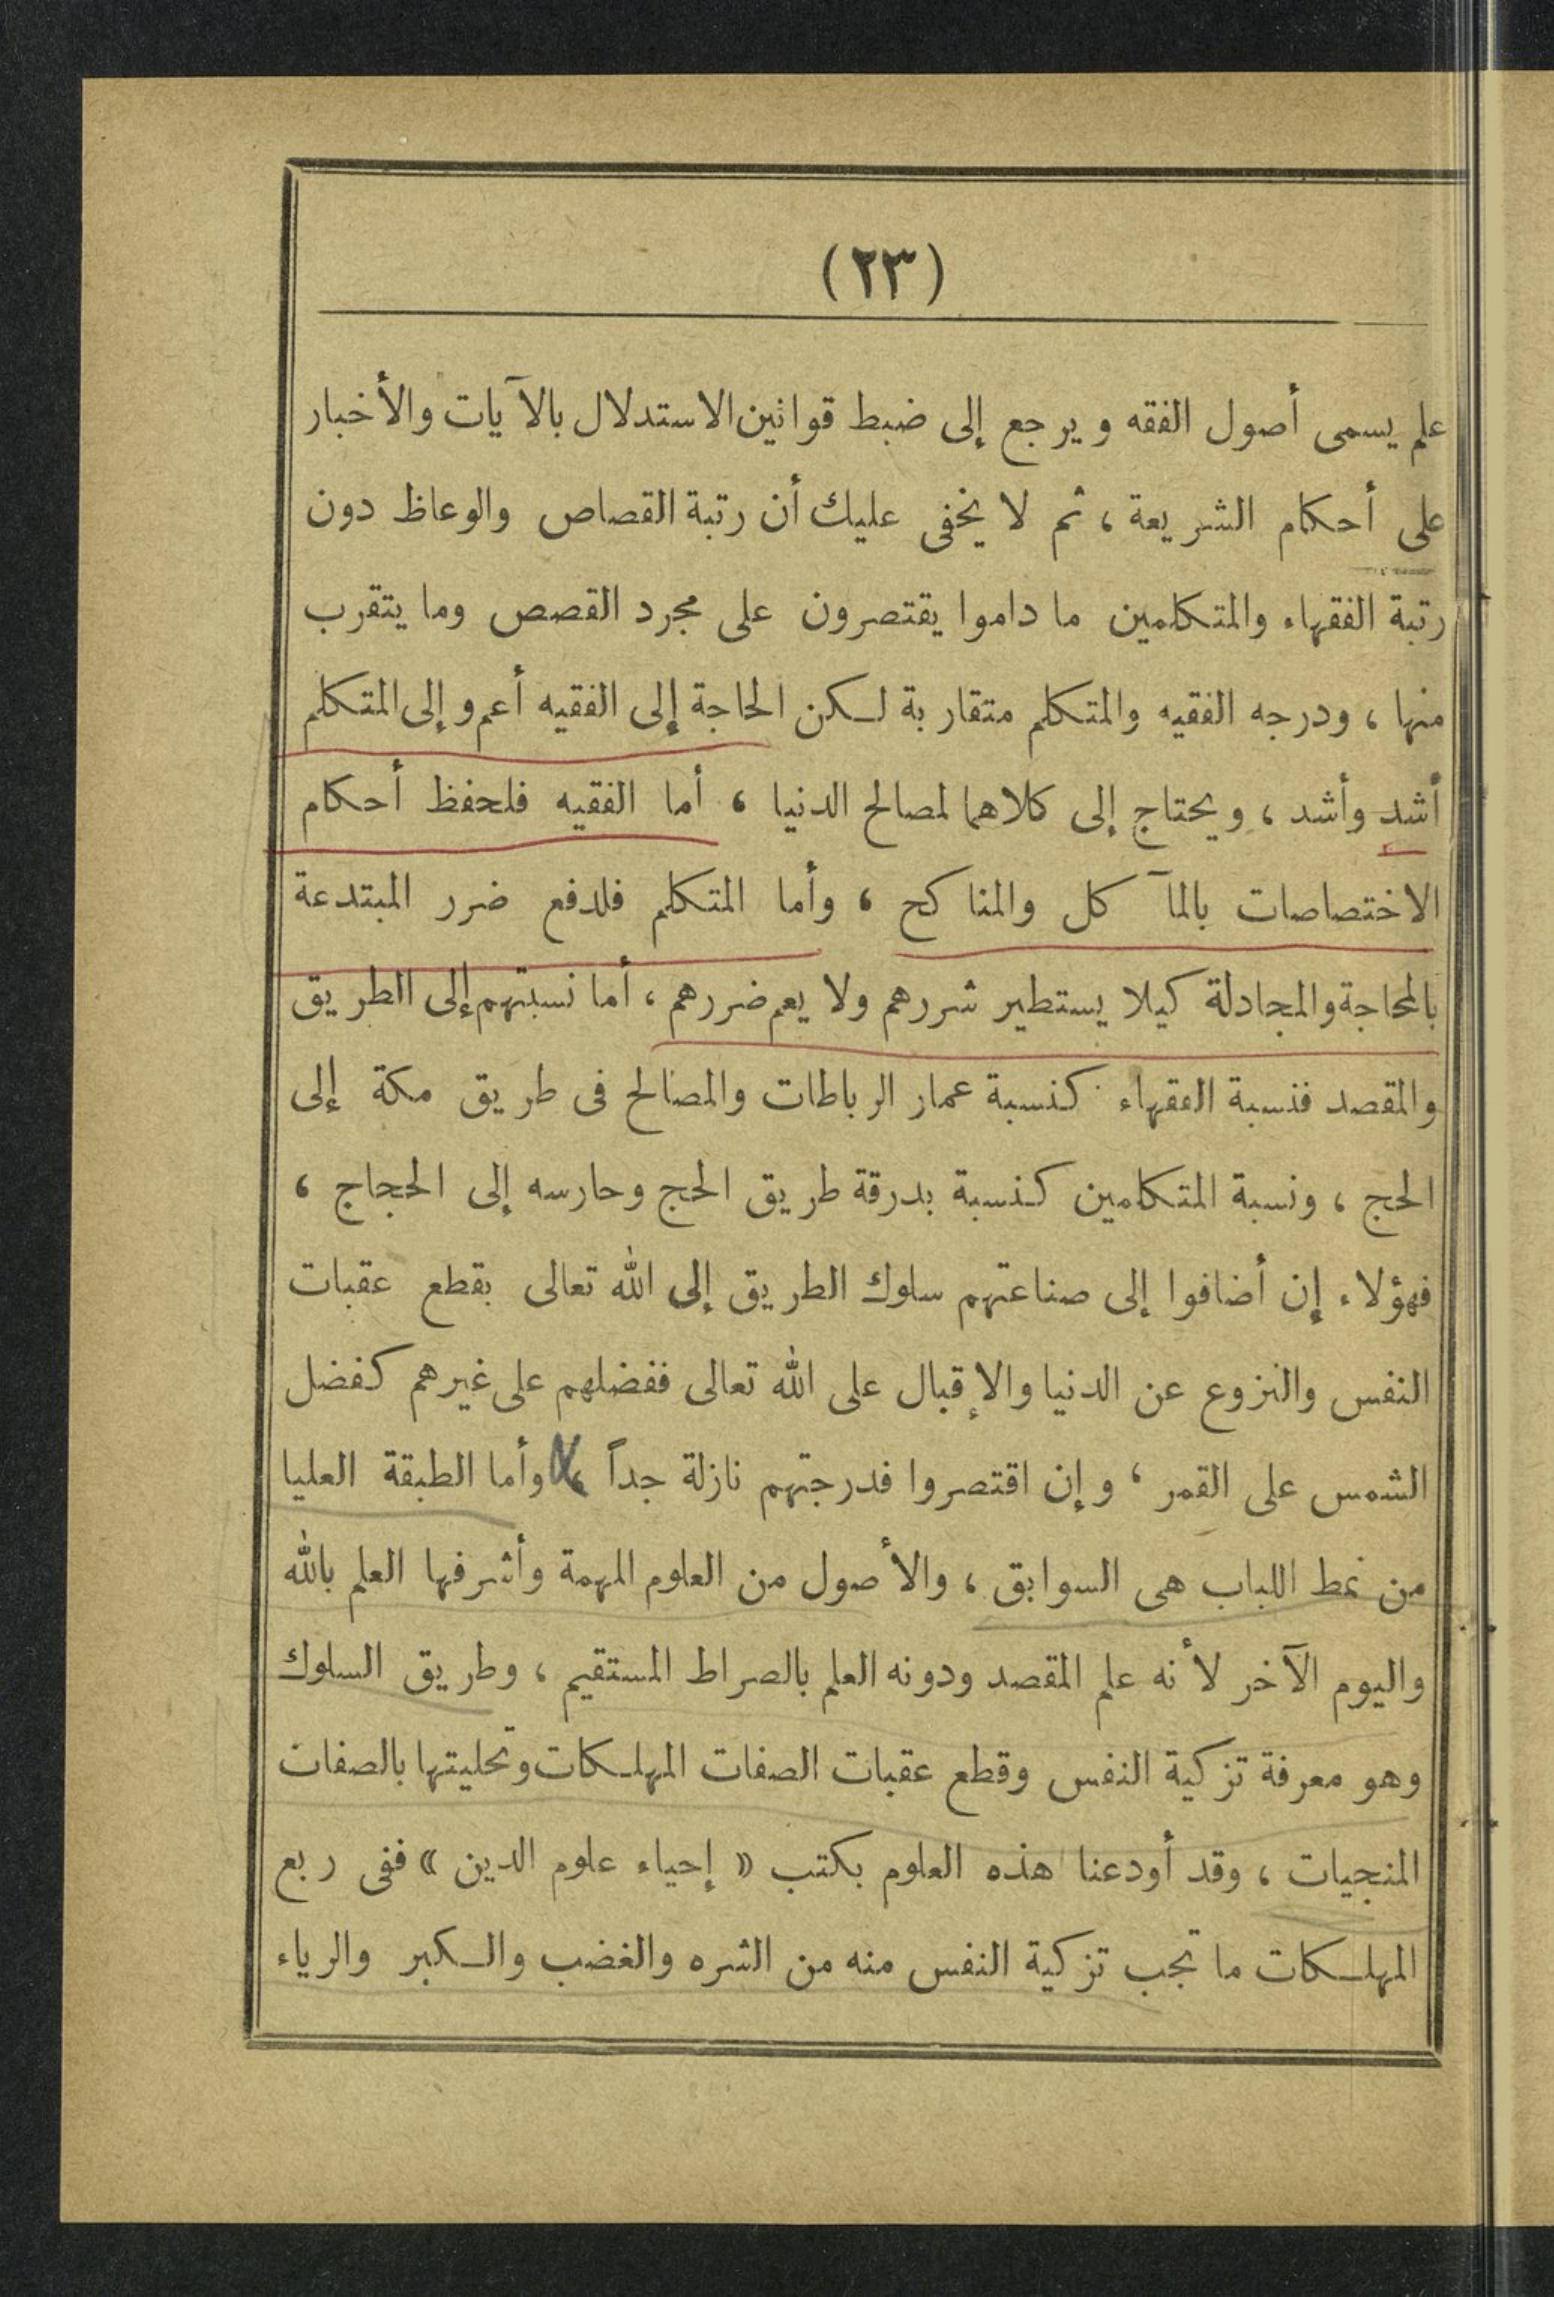 (٢٣)
علم يسمى أصول الفقه ويرجع إلى ضبط قوانين الاستدلال بالآيات والأخبار
على أحكام الشريعة ، ثم لا يخفى عليك أن رتبة القصاص والوعاظ دون
رتبة الفقهاء والمتكلمين ما داموا يقتصرون على مجرد القصص وما يتقرب
منها ، ودرجه الفقيه والمتكلم متقاربة لكن الحاجة إلى الفقيه أعم وإلى المتكلم
أشد وأشد ، ويحتاج إلى كلاهما لمصالح الدنيا ، أما الفقيه فلحفظ أحكام
الاختصاصات بالمآكل والمناكح ، وأما المتكلم فلدفع ضرر المبتدعة
بالمحاجة والمجادلة كيلا يستطير شررهم ولا يعم ضررهم ، أما نسبتهم إلى الطريق
والمقصد فنسبة الفقهاء كنسبة عمار الرباطات والمصالح فى طريق مكة إلى
الحج ، ونسبة المتكلمين كنسبة بدرقة طريق الحج وحارسه إلى الحجاج ،
فهؤلاء إن أضافوا إلى صناعتهم سلوك الطريق إلى الله تعالى بقطع عقبات
النفس والنزوع عن الدنيا والإقبال على الله تعالى ففضلهم على غيرهم كفضل
الشمس على القمر ، وإن اقتصروا فدرجتهم نازلة جداً ، وأما الطبقة العليا
من نمط اللباب هى السوابق ، والأصول من العلوم المهمة وأشرفها العلم بالله
واليوم الآخر لأنه علم المقصد ودونه العلم بالصراط المستقيم ، وطريق السلوك
وهو معرفة تزكية النفس وقطع عقبات الصفات المهلكات وتحليتها بالصفات
المنجيات ، وقد أودعنا هذه العلوم بكتب « إحياء علوم الدين » ففى ربع
المهلكات ما تجب تزكية النفس منه من الشره والغضب والكبر والرياء